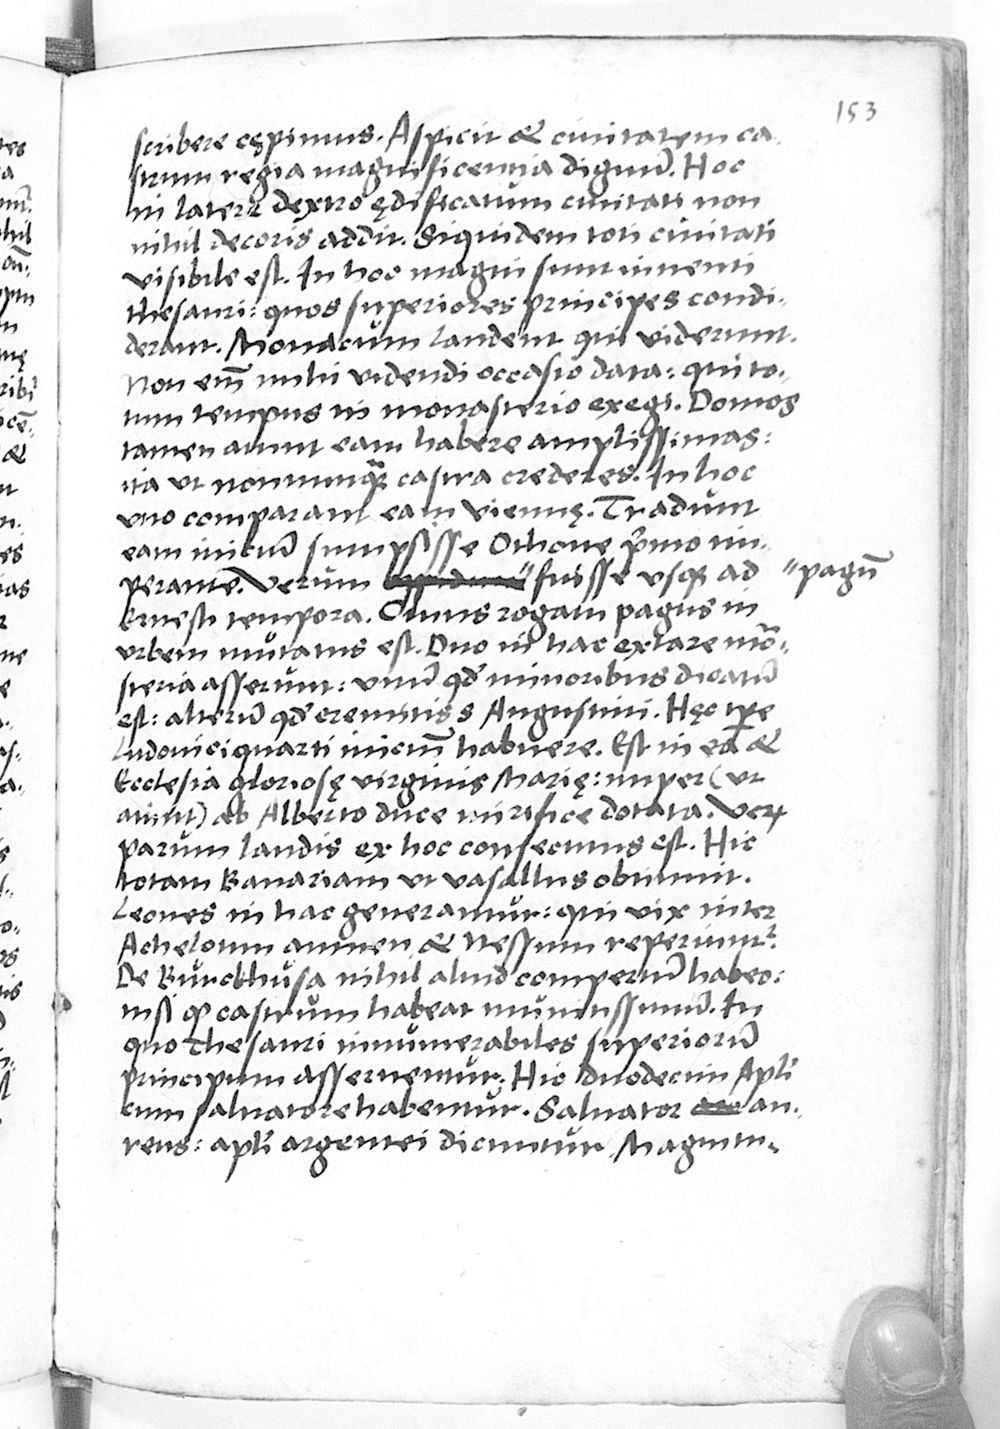 153
scribere cępimus. Aspicit & ciuitatem ca
strum regia magnificentia dignū. Hoc
in latere dextro ędificatum ciuitati non
nihil decoris addit. Siquidem toti ciuitati
visibile est. In hoc magni sunt inuenti
thesauri: quos superiores principes condi-
derant. Monacum laudent qui viderunt.
Non em̄ mihi videndi occasio data: qui to-
tum tempus in monasterio exegi. Domos
tamen aiunt eam habere amplissimas:
ita vt nonnunq̄ castra crederes. In hoc
vno comparant eam Viennę. Tradunt
eam iniciū sumpsisse Othone p̄mo im-
perante. Verum fuisse vsq; ad "pagū
Ernesti tempora. Cuius rogatu pagus in
vrbem mutatus est. Duo in hac extare mō-
steria asserunt: vnū qd̄ minoribus dicatū
est: alterū qd̄ eremitis s Augustini. Hęc tpe
Ludouici quarti iniciū habuere. Est in ea &
Ecclesia gloriosę virginis Marię: nuper (vt
aiunt) ab Alberto duce mirifice dotata. Veꝝ
parum laudis ex hoc consecutus est. Hic
totam Bauariam vt vasallus obtinuit.
Leones in hac generantur: qui vix inter
Acheloum amnen & Nessum reperiunt᷑.
De Burckhusa nihil aliud compertū habeo:
nisi qͦ castrum habeat munitissimū. In
quo thesauri innumerabiles superiorū
principum asseruentur. Hic duodecim Apl̄i
cum saluatore habentur. Saluator au-
reus: apl̄i argentei dicuntur. Magnitu-